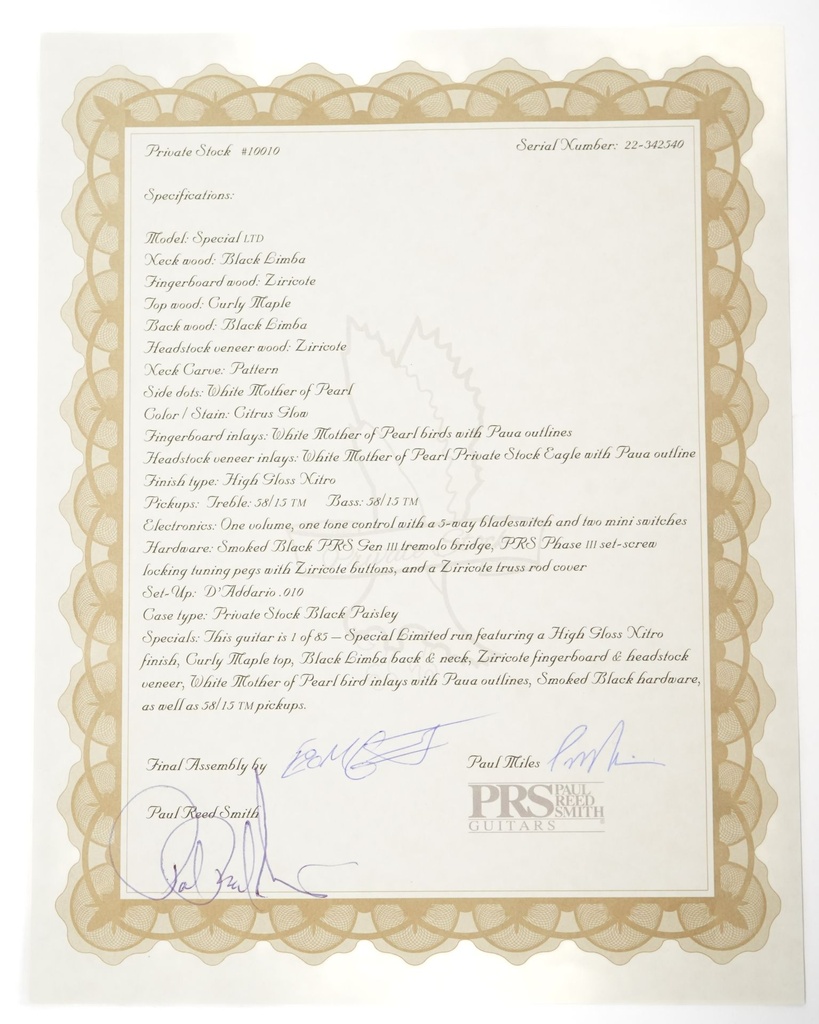 Private Stock #10010
Serial Number: 22-342540
Specifications:
Model: Special LTD
Neck wood: Black Limba
Fingerboard wood: Ziricote
Top wood: Curly Maple
Back wood: Black Limba
Headstock veneer wood: Ziricote
Neck Carve: Pattern
Side dots: White Mother of Pearl
Color / Stain: Citrus Glow
Fingerboard inlays: White Mother of Pearl birds with Paua outlines
Headstock veneer inlays: White Mother of Pearl Private Stock Eagle with Paua outline
Finish type: High Gloss Nitro
Pickups: Treble: 58/15 TM Bass: 58/15 TM
Electronics: One volume, one tone control with a 5-way bladeswitch and two mini switches
Hardware: Smoked Black PRS Gen III tremolo bridge, PRS Phase III set-screw
locking tuning pegs with Ziricote buttons, and a Ziricote truss rod cover
Set-Up: D'Addario .010
Case type: Private Stock Black Paisley
Specials: This guitar is 1 of 85 – Special Limited run featuring a High Gloss Nitro
finish, Curly Maple top, Black Limba back & neck, Ziricote fingerboard & headstock
veneer, White Mother of Pearl bird inlays with Paua outlines, Smoked Black hardware,
as well as 58/15 TM pickups.
Final Assembly by
Paul Miles
Paul Reed Smith
PRS PAUL REED SMITH
GUITARS